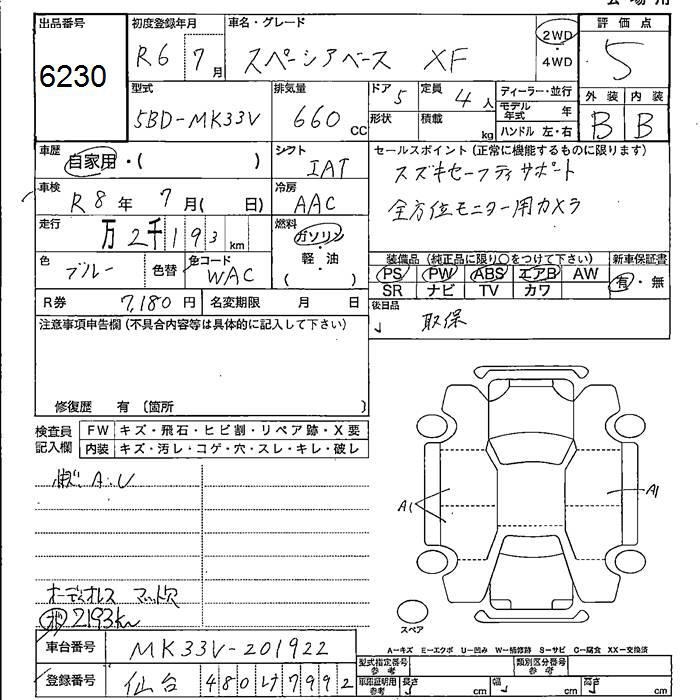 出品番号 初度登録年月 車名・グレード 評価点
6230 R6 7月 スペーシアベース XF 2WD ・ 4WD 5
型式 排気量 ドア 5 定員 4人 ディーラー・並行 外装 内装
5BD-MK33V 660cc 形状 積載 kg モデル年式 年 B B
ハンドル 左・右
車歴 シフト セールスポイント(正常に機能するものに限ります)
自家用・( ) IAT スズキセーフティサポート
車検 冷房
R8年 7月( 日) AAC 全方位モニター用カメラ
走行 燃料
万 2千193km ガソリン・軽・油 ( )
色 ブルー 色替 色コード WAC 装備品(純正品に限り○をつけて下さい) 新車保証書
PS PW ABS エアB AW 有・無
SR ナビ TV カワ
R券 7,180円 名変期限 月 日 後日品
取保
注意事項申告欄(不具合内容等は具体的に記入して下さい)
修復歴 有〔箇所 〕
検査員記入欄 FW キズ・飛石・ヒビ割・リペア跡・X要
内装 キズ・汚レ・コゲ・穴・スレ・キレ・破レ
A.U
A1 A1
オーディオレス マット欠
2193km
スペア
A-キズ E-エクボ U-凹み W-補修跡 S-サビ C-腐食 XX-交換済
車台番号 MK33V-201922 型式指定番号 参考 類別区分番号 参考
登録番号 仙台 480 け 7992 車庫証明用 参考 長さ cm 幅 cm 高さ cm